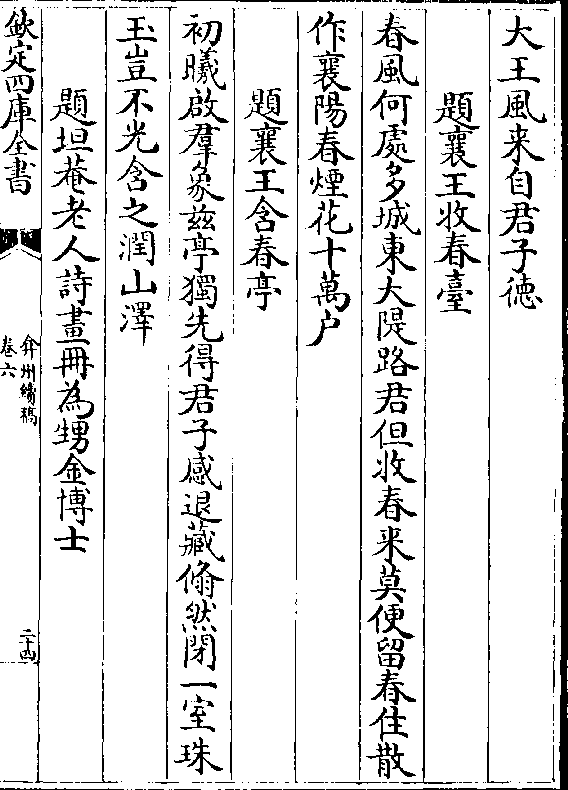 大王風来自君子徳
題襄王收春臺
春風何處多城東大隄路君但收春来莫便留春住散
作襄陽春煙花十萬户
題襄王含春亭
初曦啟羣象兹亭獨先得君子感退藏翛然閉一室珠
玉豈不光含之潤山澤
題坦菴老人詩畫冊為甥金博士
欽定四庫全書
弇州續稿
卷六
二十四